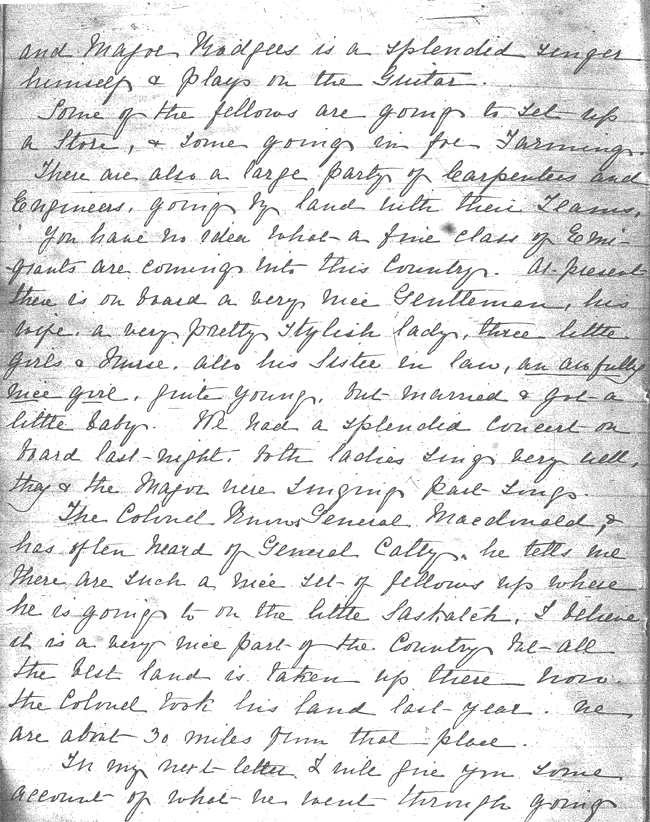 and Major Nadgers is a splendid singer
himself & plays on the Guitar.
Some of the fellows are going to set up
a Store, & some going in for Farming.
There are also a large party of Carpenters and
Engineers, going by land with their Teams.
You have no idea what a fine class of Emi-
grants are coming into this Country. At present
there is on board a very nice Gentleman, his
wife, a very pretty stylish lady, three little
girls & Nurse, also his Sister in law, an awfully
nice girl, quite young, but married & got a
little baby. We had a splendid Concert on
board last night, both ladies sing very well,
they & the Major were singing part songs.
The Colonel knows General Macdonald, &
has often heard of General Catty, he tells me
there are such a nice set of fellows up where
he is going to on the little Saskatch, I believe
it is a very nice part of the Country but all
the best land is taken up there now.
the Colonel took his land last year. We
are about 30 miles from that place.
In my next letter I will give you some
account of what we went through going